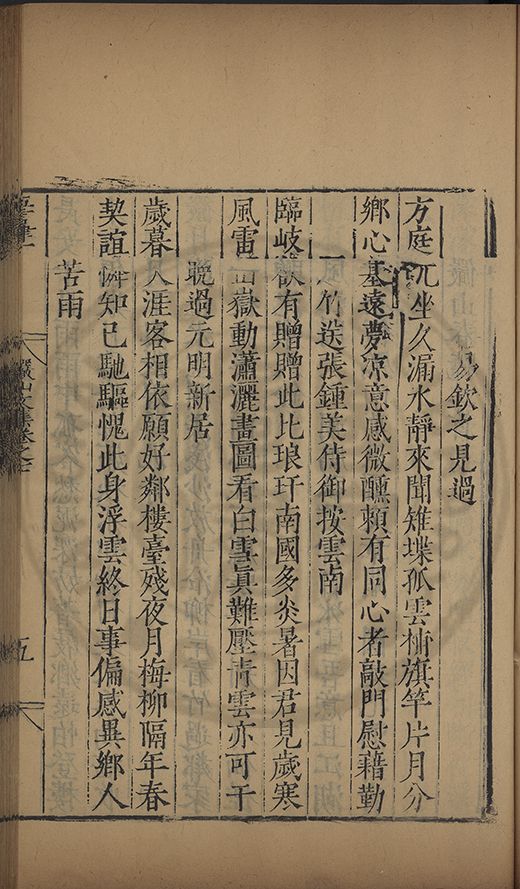 易欽之見過
方庭兀坐久漏水靜來聞雉堞孤雲柟旗竿片月分
鄉心基遠夢凉意感微醺頼有同心者敲門慰藉勤
竹送張鍾美侍御按雲南
臨岐欲有贈贈此比琅玕南國多炎暑因君見歲寒
風雷山嶽動瀟灑畫圖看白雲眞難壓青雲亦可干
晚過元明新居
歲暮天涯客相依願好鄰樓臺殘夜月梅柳隔年春
契誼憐知己馳驅愧此身浮雲終日事偏感異鄉人
苦雨
儼山文集卷之
五